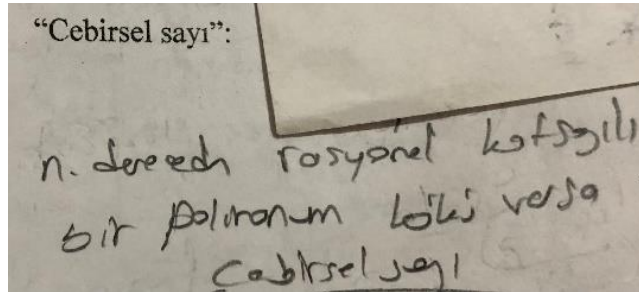 “Cebirsel sayı”:
n. dereceden rasyonel katsayılı
bir polinomun kökü varsa
Cebirsel sayı